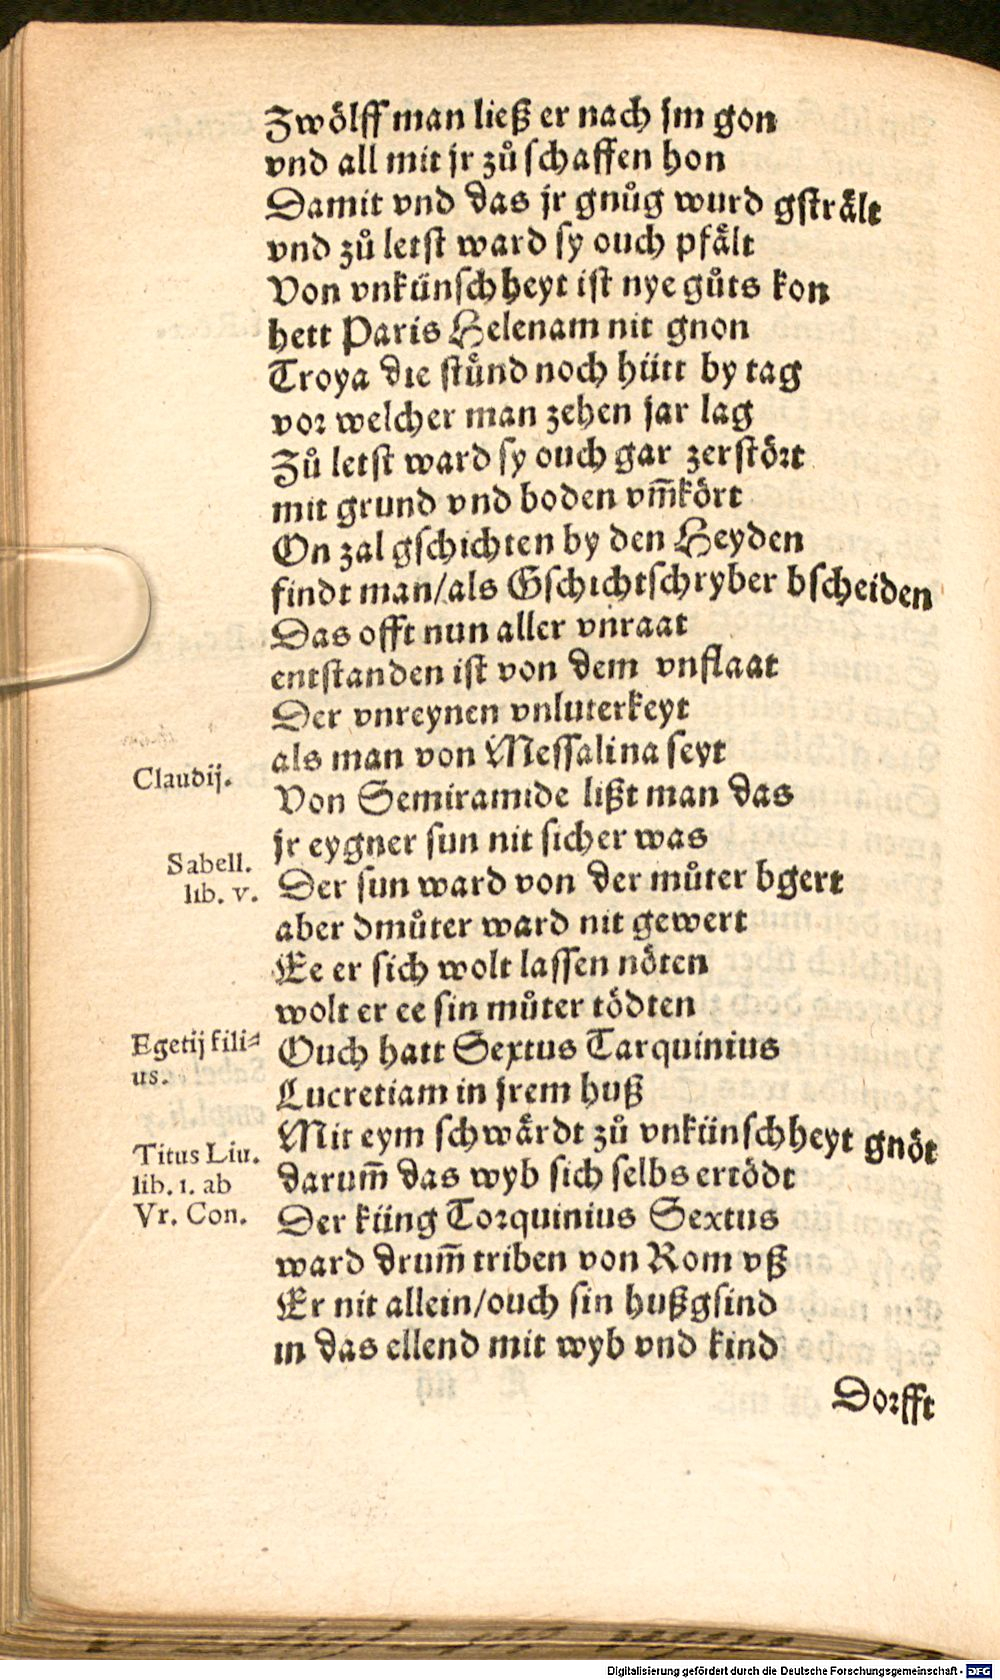 Zwölff man ließ er nach jm gon
vnd all mit jr zů schaffen hon
Damit vnd das jr gnůg wurd gstrält
vnd zů letst ward sy ouch pfält
Von vnkünschheyt ist nye gůts kon
hett Paris Helenam nit gnon
Troya die stůnd noch hütt by tag
vor welcher man zehen jar lag
Zů letst ward sy ouch gar zerstört
mit grund vnd boden vm̃kört
On zal gschichten by den Heyden
findt man/als Gschichtschryber bscheiden
Das offt nun aller vnraat
entstanden ist von dem vnflaat
Der vnreynen vnluterkeyt
als man von Messalina seyt
Claudij.
Von Semiramide lißt man das
jr eygner sun nit sicher was
Sabell.
lib. v.
Der sun ward von der můter bgert
aber dmůter ward nit gewert
Ee er sich wolt lassen nöten
wolt er ee sin můter tödten
Egetij fili⸗
us.
Ouch hatt Sextus Tarquinius
Lucretiam in jrem huß
Mit eym schwärdt zů vnkünschheyt gnöt
Titus Liu.
lib. 1. ab
Vr. Con.
darum̃ das wyb sich selbs ertödt
Der küng Torquinius Sextus
ward drum̃ triben von Rom vß
Er nit allein/ouch sin hußgsind
in das ellend mit wyb vnd kind
Dorfft
Digitalisierung gefördert durch die Deutsche Forschungsgemeinschaft - DFG